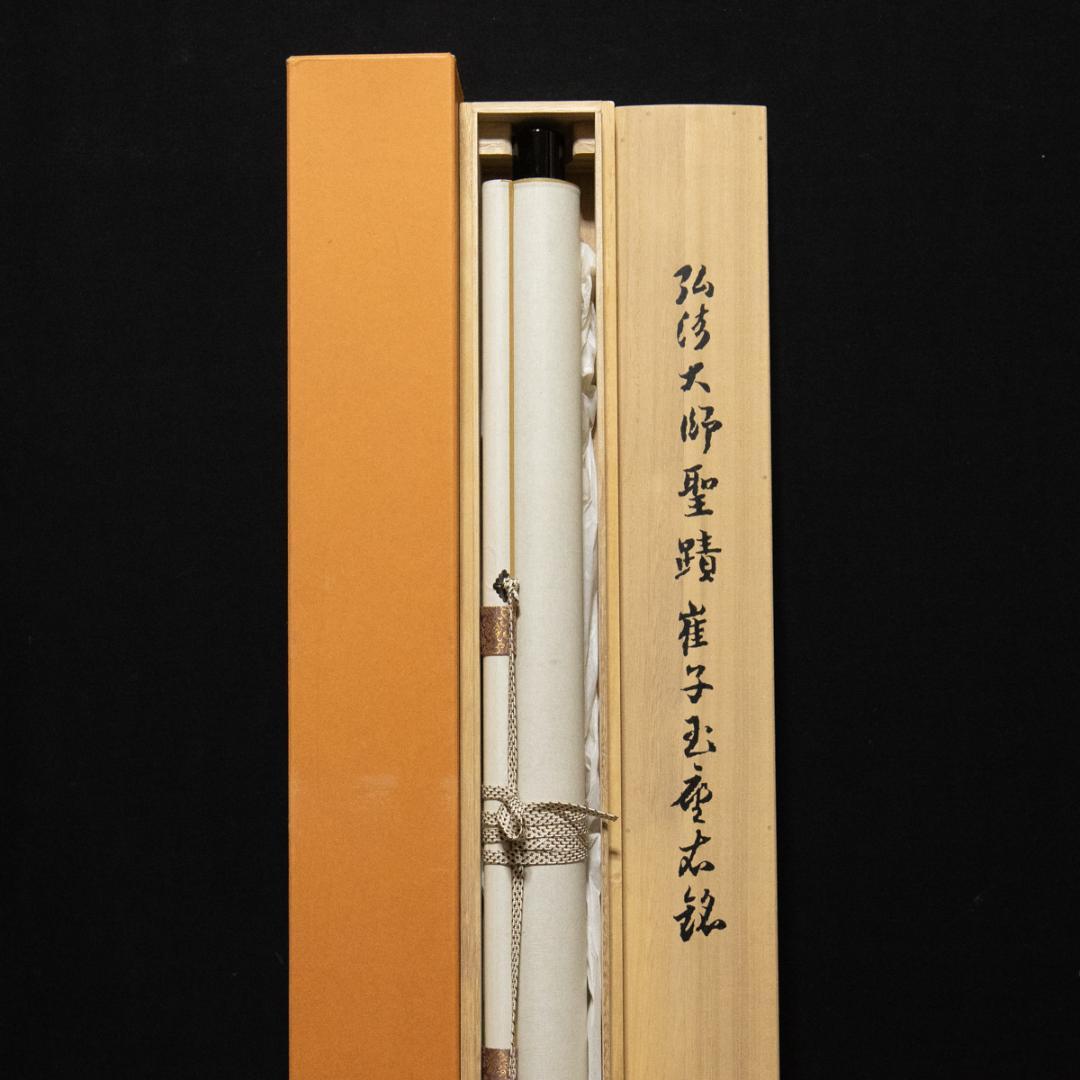 弘法大師聖蹟崔子玉座右銘